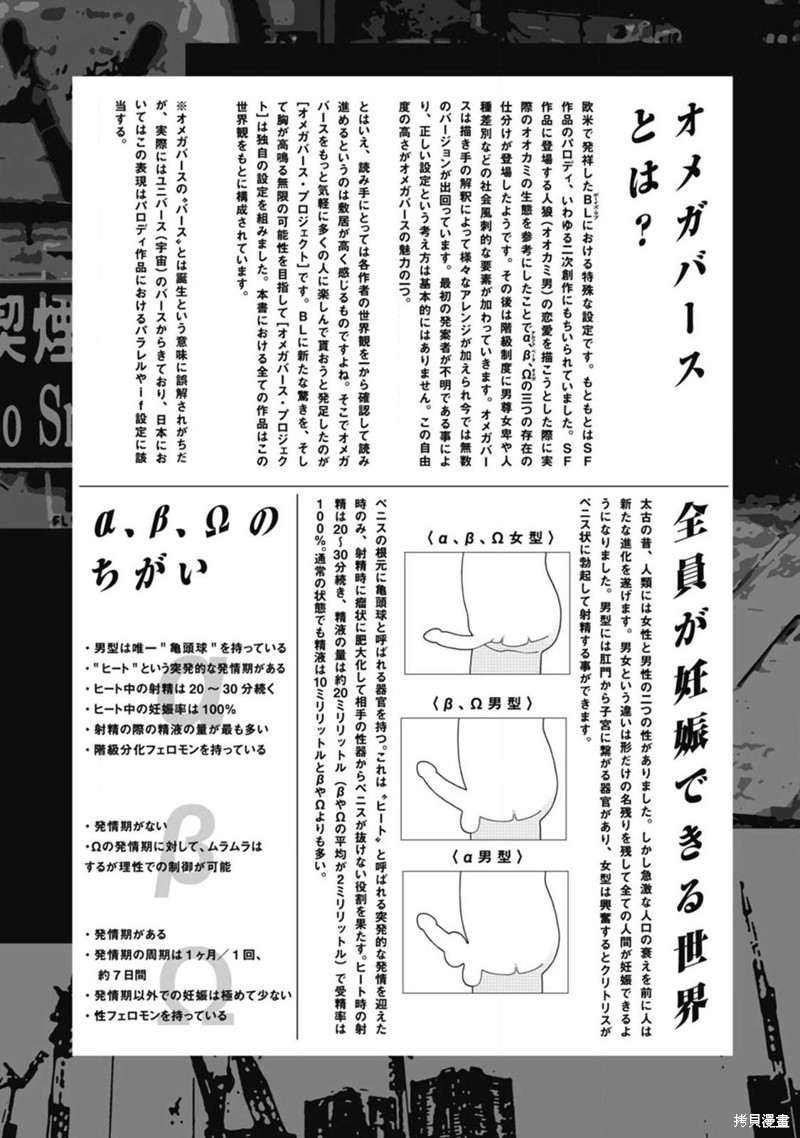 オメガバース
とは？
欧米で発祥したBLにおける特殊な設定です。もともとはSF
作品のパロディ、いわゆる二次創作にもちいられていました。SF
作品に登場する人狼（オオカミ男）の恋愛を描こうとした際に実
際のオオカミの生態を参考にしたことでα、β、Ωの三つの存在の
仕分けが登場したようです。その後は階級制度に男尊女卑や人
種差別などの社会風刺的な要素が加わっていきます。オメガバー
スは描き手の解釈によって様々なアレンジが加えられ今では無数
のバージョンが出回っています。最初の発案者が不明である事によ
り、正しい設定という考え方は基本的にはありません。この自由
度の高さがオメガバースの魅力の一つ。
とはいえ、読み手にとっては各作者の世界観を一から確認して読み
進めるというのは敷居が高く感じるものですよね。そこでオメガ
バースをもっと気軽に多くの人に楽しんで貰おうと発足したのが
［オメガバース・プロジェクト］です。BLに新たな驚きを、そし
て胸が高鳴る無限の可能性を目指して［オメガバース・プロジェク
ト］は独自の設定を組みました。本書における全ての作品はこの
世界観をもとに構成されています。
※オメガバースの〝バース〟とは誕生という意味に誤解されがちだ
が、実際にはユニバース（宇宙）のバースからきており、日本にお
いてはこの表現はパロディ作品におけるパラレルやif設定に該
当する。
全員が妊娠できる世界
太古の昔、人類には女性と男性の二つの性がありました。しかし急激な人口の衰えを前に人は
新たな進化を遂げます。男女という違いは形だけの名残りを残して全ての人間が妊娠できるよ
うになりました。男型には肛門から子宮に繋がる器官があり、女型は興奮するとクリトリスが
ペニス状に勃起して射精する事ができます。
〈α、β、Ω女型〉
〈β、Ω男型〉
〈α男型〉
ペニスの根元に亀頭球と呼ばれる器官を持つ。これは〝ヒート〟と呼ばれる突発的な発情を迎えた
時のみ、射精時に瘤状に肥大化して相手の性器からペニスが抜けない役割を果たす。ヒート時の射
精は20～30分続き、精液の量は約20ミリリットル（βやΩの平均が2ミリリットル）で受精率は
100％。通常の状態でも精液は10ミリリットルとβやΩよりも多い。
α、β、Ωの
ちがい
α
・男型は唯一"亀頭球"を持っている
・"ヒート"という突発的な発情期がある
・ヒート中の射精は20～30分続く
・ヒート中の妊娠率は100%
・射精の際の精液の量が最も多い
・階級分化フェロモンを持っている
β
・発情期がない
・Ωの発情期に対して、ムラムラは
するが理性での制御が可能
Ω
・発情期がある
・発情期の周期は1ヶ月／1回、
約7日間
・発情期以外での妊娠は極めて少ない
・性フェロモンを持っている
喫煙
o Sm
FL
拷貝漫畫